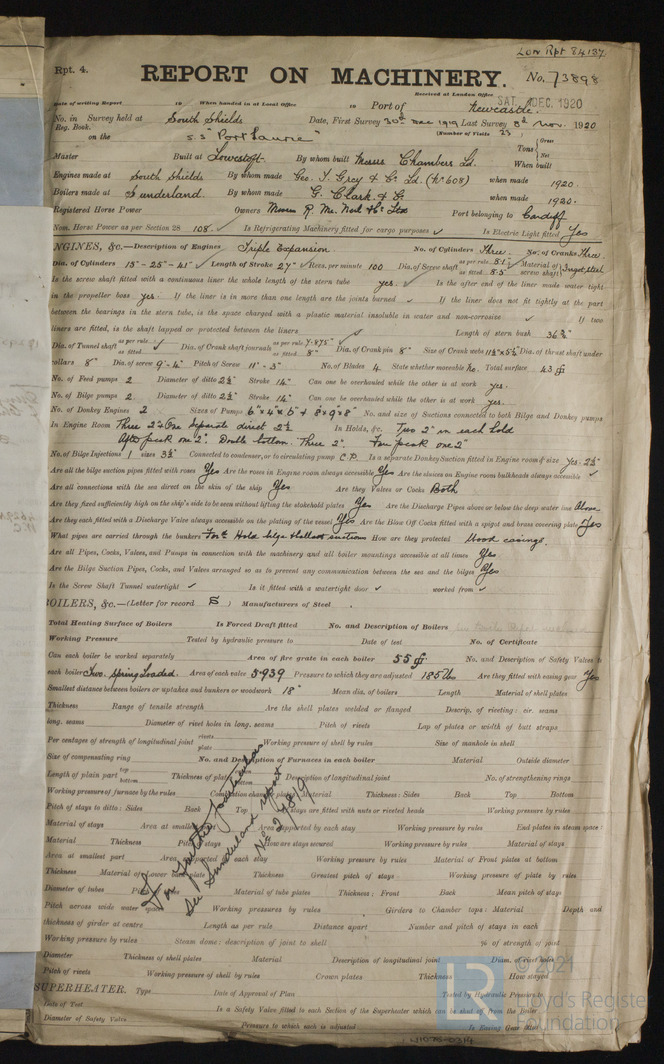 Lon Rpt 84137
Rpt. 4.
REPORT ON MACHINERY.
No. 73898
Received at London Office SAT. DEC. 1920
Date of writing Report 19 When handed in at Local Office 19 Port of Newcastle.
No. in Survey held at South Shields Date, First Survey 30th Dec 1919 Last Survey 8th Nov. 1920
Reg. Book. (Number of Visits 23)
on the S.S. "Port Launie"
Tons Gross Net
Master Built at Lowestoft. By whom built Messrs. Chambers Ld. When built
Engines made at South Shields By whom made Geo. T. Grey & Co. Ld. (No 608) when made 1920.
Boilers made at Sunderland. By whom made G. Clark & when made 1920.
Registered Horse Power Owners Port belonging to Cardiff
Nom. Horse Power as per Section 28 108 Is Refrigerating Machinery fitted for cargo purposes Is Electric Light fitted Yes
NGINES, &c.—Description of Engines Triple Expansion. No. of Cylinders Three. No. of Cranks Three.
Dia. of Cylinders 15"-25"-41" Length of Stroke 27" Revs. per minute 100 Dia. of Screw shaft as per rule 8.1 as fitted 8.5" Material of screw shaft Ingot steel
Is the screw shaft fitted with a continuous liner the whole length of the stern tube yes. Is the after end of the liner made water tight
in the propeller boss yes. If the liner is in more than one length are the joints burned If the liner does not fit tightly at the part
between the bearings in the stern tube, is the space charged with a plastic material insoluble in water and non-corrosive If two
liners are fitted, is the shaft lapped or protected between the liners Length of stern bush 36¾"
Dia. of Tunnel shaft as per rule as fitted Dia. of Crank shaft journals as per rule 7.875" as fitted 8" Dia. of Crank pin 8" Size of Crank webs Dia. of thrust shaft under
collars 8" Dia. of screw 9'-4" Pitch of Screw 11'-3" No. of Blades 4 State whether moveable No. Total surface 43
No. of Feed pumps 2 Diameter of ditto 2½" Stroke 14" Can one be overhauled while the other is at work yes.
No. of Bilge pumps 2 Diameter of ditto 2½" Stroke 14" Can one be overhauled while the other is at work yes.
No. of Donkey Engines 2 Sizes of Pumps 6"x4"x6" & 8"x9"x8" No. and size of Suctions connected to both Bilge and Donkey pumps
In Engine Room Three 2" & One Separate direct 2½ In Holds, &c. Two 2" in each hold
After peak one 2". Double bottom. Three 2". Fore peak one 2"
No. of Bilge Injections 1 sizes 3½" Connected to condenser, or to circulating pump C.P. Is a separate Donkey Suction fitted in Engine room & size Yes. 2½"
Are all the bilge suction pipes fitted with roses Yes Are the roses in Engine room always accessible Yes Are the sluices on Engine room bulkheads always accessible
Are all connections with the sea direct on the skin of the ship Yes Are they Valves or Cocks Both
Are they fixed sufficiently high on the ship's side to be seen without lifting the stokehold plates Yes Are the Discharge Pipes above or below the deep water line Above
Are they each fitted with a Discharge Valve always accessible on the plating of the vessel Yes Are the Blow Off Cocks fitted with a spigot and brass covering plate Yes
What pipes are carried through the bunkers Ford Hold bilge & ballast suctions How are they protected Wood casings.
Are all Pipes, Cocks, Valves, and Pumps in connection with the machinery and all boiler mountings accessible at all times Yes.
Are the Bilge Suction Pipes, Cocks, and Valves arranged so as to prevent any communication between the sea and the bilges Yes
Is the Screw Shaft Tunnel watertight Is it fitted with a watertight door worked from
BOILERS, &c.—(Letter for record S) Manufacturers of Steel
Total Heating Surface of Boilers Is Forced Draft fitted No. and Description of Boilers
Working Pressure Tested by hydraulic pressure to Date of test No. of Certificate
Can each boiler be worked separately Area of fire grate in each boiler 55 No. and Description of Safety Valves to
each boiler Two. Spring Loaded. Area of each valve 5.939 Pressure to which they are adjusted 185 lbs Are they fitted with easing gear Yes
Smallest distance between boilers or uptakes and bunkers or woodwork 18" Mean dia. of boilers Length Material of shell plates
Thickness Range of tensile strength Are the shell plates welded or flanged Descrip. of riveting: cir. seams
long. seams Diameter of rivet holes in long. seams Pitch of rivets Lap of plates or width of butt straps
Per centages of strength of longitudinal joint rivets plates Working pressure of shell by rules Size of manhole in shell
Size of compensating ring No. and Description of Furnaces in each boiler Material Outside diameter
Length of plain part top bottom Thickness of plates bottom Description of longitudinal joint No. of strengthening rings
Working pressure of furnace by the rules Combustion chamber plates: Material Thickness: Sides Back Top Bottom
Pitch of stays to ditto: Sides Back Top stays are fitted with nuts or riveted heads Working pressure by rules
Material of stays Area at smallest Area supported by each stay Working pressure by rules End plates in steam space:
Material Thickness Pitch of stays How are stays secured Working pressure by rules Material of stays
Area at smallest part Area supported by each stay Working pressure by rules Material of Front plates at bottom
Thickness Material of Lower back plate Thickness Greatest pitch of stays Working pressure of plate by rules
Diameter of tubes Pitch Material of tube plates Thickness: Front Back Mean pitch of stays
Pitch across wide water spaces Working pressures by rules Girders to Chamber tops: Material Depth and
thickness of girder at centre Length as per rule Distance apart Number and pitch of stays in each
Working pressure by rules Steam dome: description of joint to shell % of strength of joint
Diameter Thickness of shell plates Material Description of longitudinal joint Diam. of rivet holes
Pitch of rivets Working pressure of shell by rules Crown plates Thickness How stayed
For further particulars
see Sunderland report
No 27819
SUPERHEATER. Type Date of Approval of Plan Tested by Hydraulic Pressure to
Date of Test Is a Safety Valve fitted to each Section of the Superheater which can be shut off from the Boiler
Diameter of Safety Valve Pressure to which each is adjusted Is Easing Gear fitted
© 2021
Lloyd's Register
Foundation